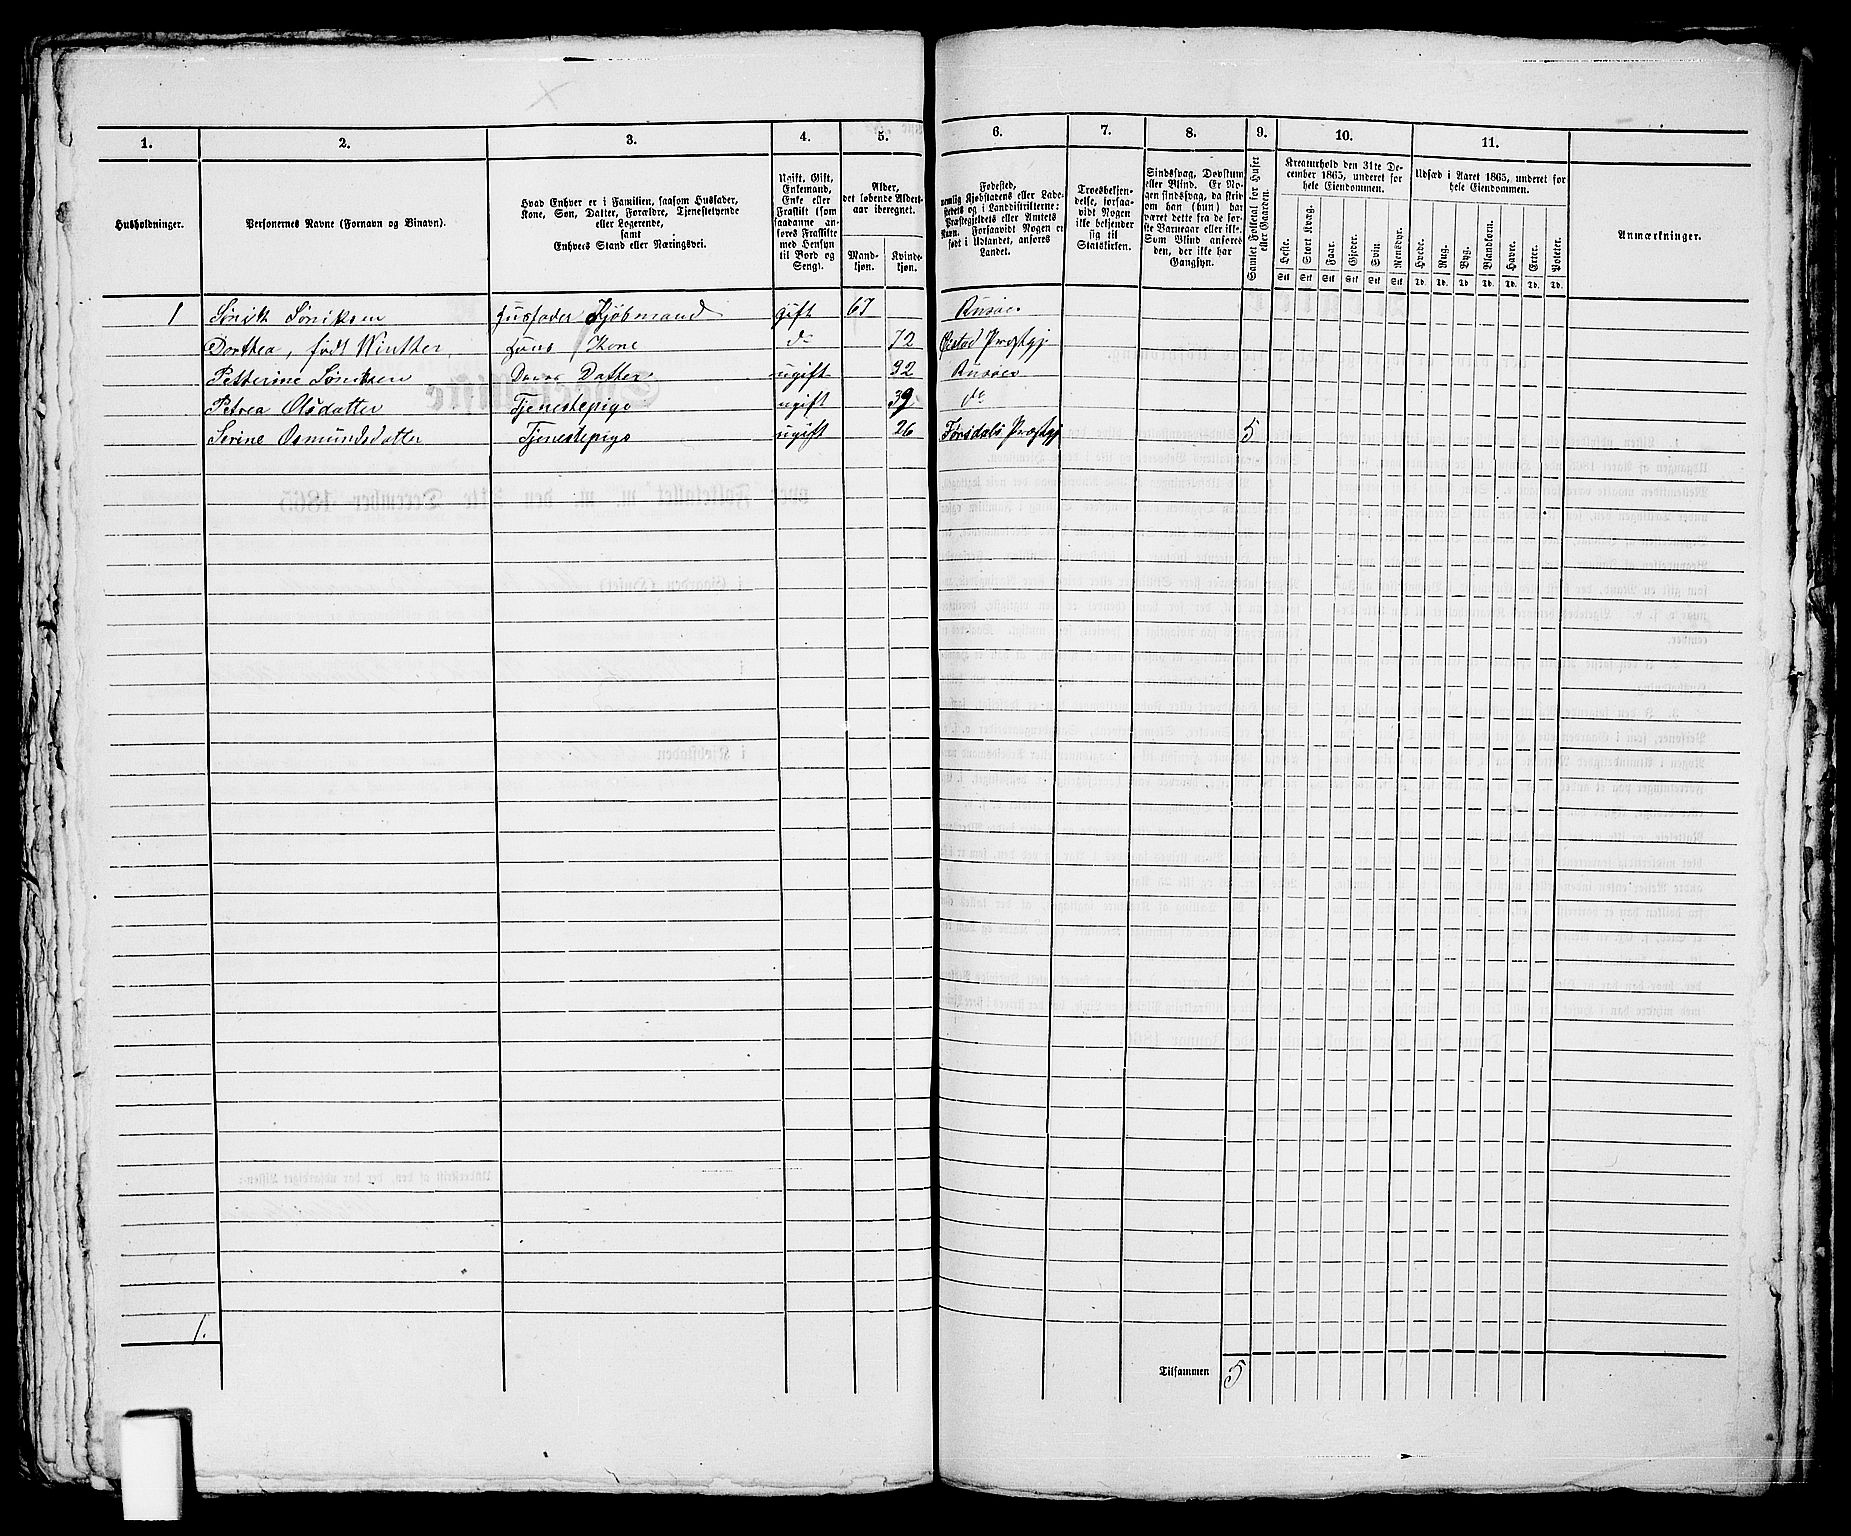 1. 2. 3. 4. 5. 6. 7. 8. 9. 10. 11.
Husholdninger.
Personernes Navne (Fornavn og Binavn).
Hvad Enhver er i Familien, saasom Husfader,
Kone, Søn, Datter, Forældre, Tjenestetyende
eller Logerende,
samt
Enhvers Stand eller Næringsvei.
Ugift, Gift,
Enkemand,
Enke eller
Fraskilt (som
saadanne an-
føres Fraskilte
med Hensyn
til Bord og
Seng).
Alder,
det løbende Alders-
aar iberegnet.
Mand-
kjøn.
Kvinde-
kjøn.
Fødested,
nemlig Kjøbstadens eller Lade-
stedets og i Landdistrikterne:
Præstegjeldets eller Amtets
Navn. Forsaavidt Nogen er
født i Udlandet, anføres
Landet.
Troesbekjen-
delse, forsaa-
vidt Nogen
ikke bekjender
sig til
Statskirken.
Sindssvag, Døvstum
eller Blind. Er No-
gen sindssvag, da skriv
om han (hun) har
været dette fra de før-
ste Barneaar eller ikke.
Som Blind anføres
den, der ikke har
Gangsyn.
Samlet Folketal for Huset
eller Gaarden.
Kreaturhold den 31te De-
cember 1865, underet for
hele Eiendommen.
Heste. Stort Kvæg. Faar. Gjeder. Svin Rensdyr.
Stk Stk Stk Stk Stk Stk
Udsæd i Aaret 1865, underet for
hele Eiendommen.
Hvede. Rug. Byg. Blandkorn. Havre. Erter. Poteter.
Td. Td. Td. Td. Td. Td. Td.
Anmærkninger.
1 Sørik Søniksen Husfader Kjøbmand gift 67
Dorthea, født Winther, hans Kone do 72 Øiestad Præstgj
Petterine Søniksen Deres Datter ugift 32
Petrea Olsdatter Tjenestepige ugift 39 do
Serine Osmundsdatter Tjenestepige ugift 26 Præstgj 5
1.
Tilsammen 5